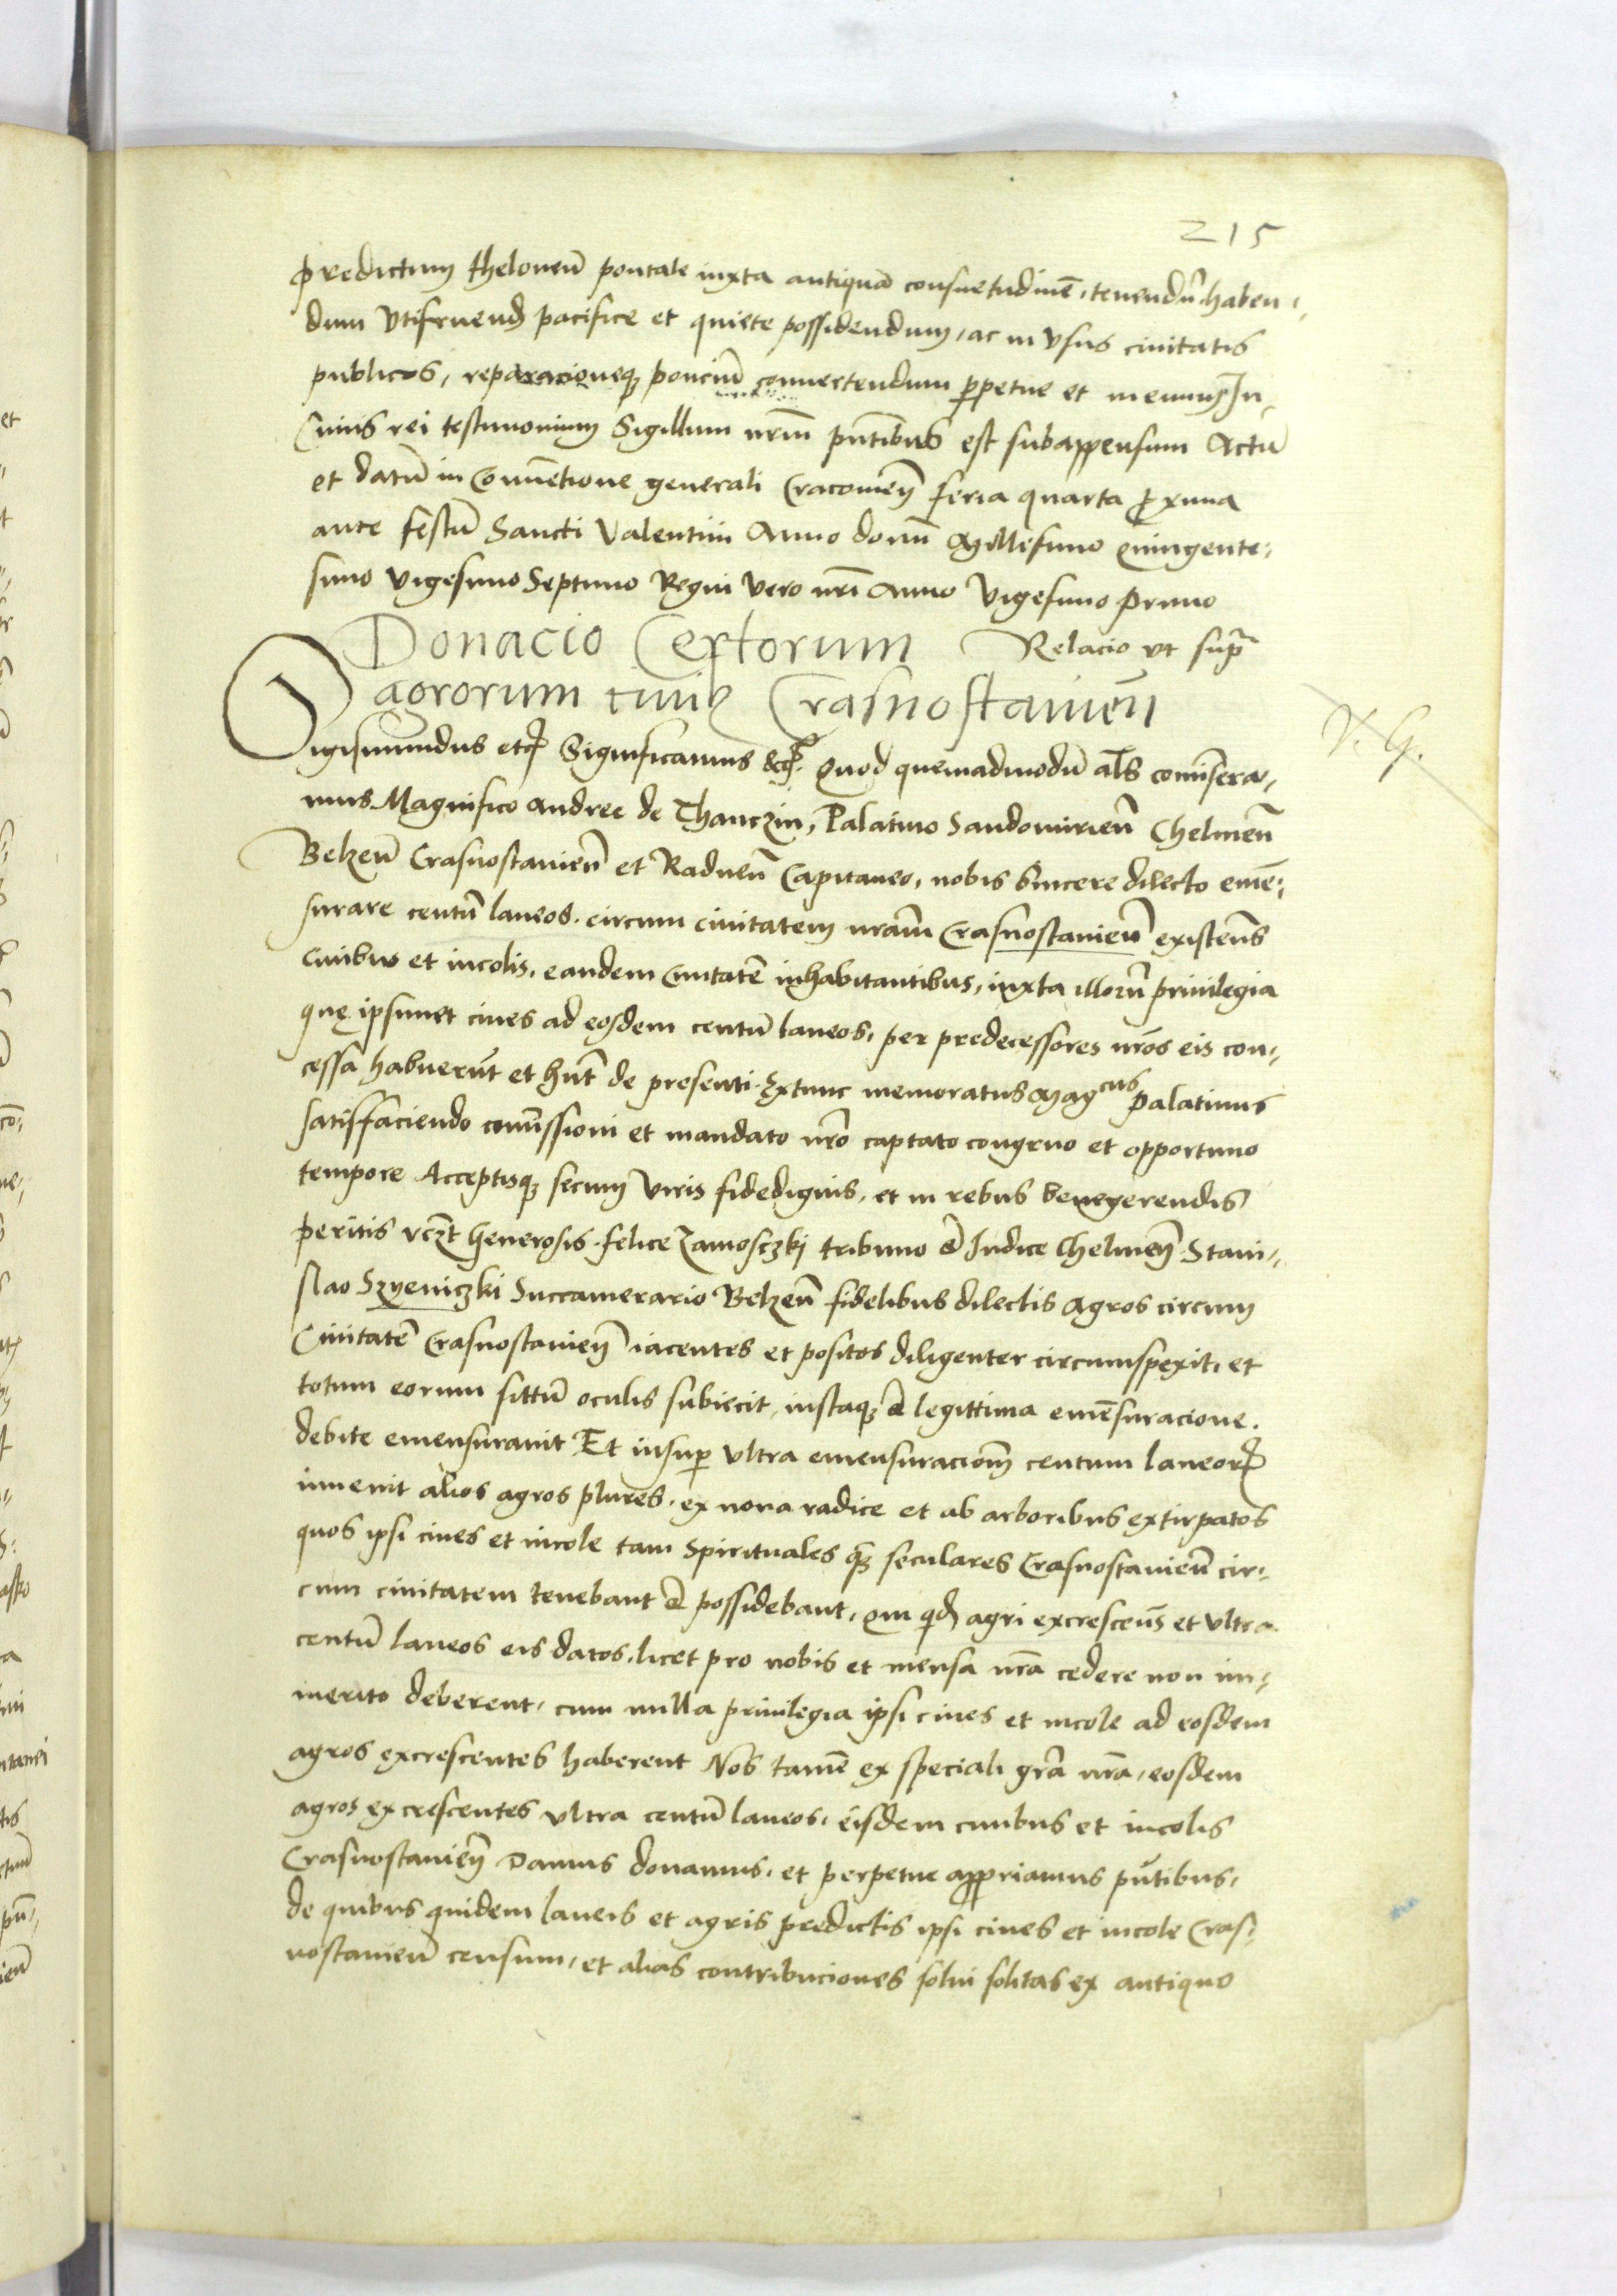 215
predictum theloneū pontale iuxta antiquā consuetudinē, tenendū haben-
dum utifruend pacifice et quiete possidendum, ac in usus ciuitatis
publicos, reparacioneq; poncium conuertendum ꝑpetue et in euum In
Cuius rei testimonium Sigillum nrm̄ pn̄tibus est subappensum Actū
et datū in Conuentione generali Cracouien̄ feria quarta proxima
ante festū Sancti Valentini Anno domī Millesimo Quingente-
simo Vigesimo Septimo Regni vero nrī Anno Vigesimo Primo
Donacio Certorum Relacio ut supra
agrorum ciuib; Crasnostauien̄
V. G.
Sigismundus etc. Significamus &c. Quod quemadmodū als comisera-
mus Magnifico Andree de Thanczin, Palatino Sandomirien̄ Chelmen̄
Belzen̄ Crasnostauien̄ et Radnen̄ Capitaneo, nobis sincere dilecto emē-
surare centū laneos, circum ciuitatem nram̄ Crasnostauien̄ existen̄s
Ciuibus et incolis, eandem Ciuitatē inhabitantibus, iuxta illorū priuilegia
quę ipsimet ciues ad eosdem centū laneos, per predecessores nros̄ eis con-
cessa habuerūt et hn̄t de presenti. Extunc memoratus Mag<sup>cus</sup> Palatinus
satisfaciendo comissioni et mandato nrō captato congruo et opportuno
tempore Acceptisq; secum viris fidedignis, et in rebus benegerendis
peritis vczt Generosis felice Zamosczkj tribuno & Iudice Chelmen̄ Stani-
slao Szyeniczki Succamerario Belzen̄ fidelibus dilectis Agros circum
Ciuitatē Crasnostauien̄ iacentes et positos diligenter circumspexit, et
totum eorum sittū oculis subiecit, iustaq; & legittima emēsuracione.
debite emensurauit Et insuꝑ ultra emensuracionē centum laneorꝝ
inuenit alios agros plures, ex noua radice et ab arboribus extirpatos
quos ipsi ciues et incole tam Spirituales q̄; seculares Crasnostauien̄ cir-
cum ciuitatem tenebant & possidebant, qui qd agri excrescen̄s et ultra
centū laneos eis datos, licet pro nobis et mensa nrā cedere non im-
merito deberent, cum nulla priuilegia ipsi ciues et incole ad eosdem
agros excrescentes haberent Nos tamē ex speciali grā nrā, eosdem
agros excrescentes ultra centū laneos, eisdem ciuibus et incolis
Crasnostauien̄ Damus donamus, et perpetue appropriamus pn̄tibus,
de quibus quidem laneis et agris predictis ipsi ciues et incole Cras-
nostauien̄ censum, et alias contribuciones solui solitas ex antiquo